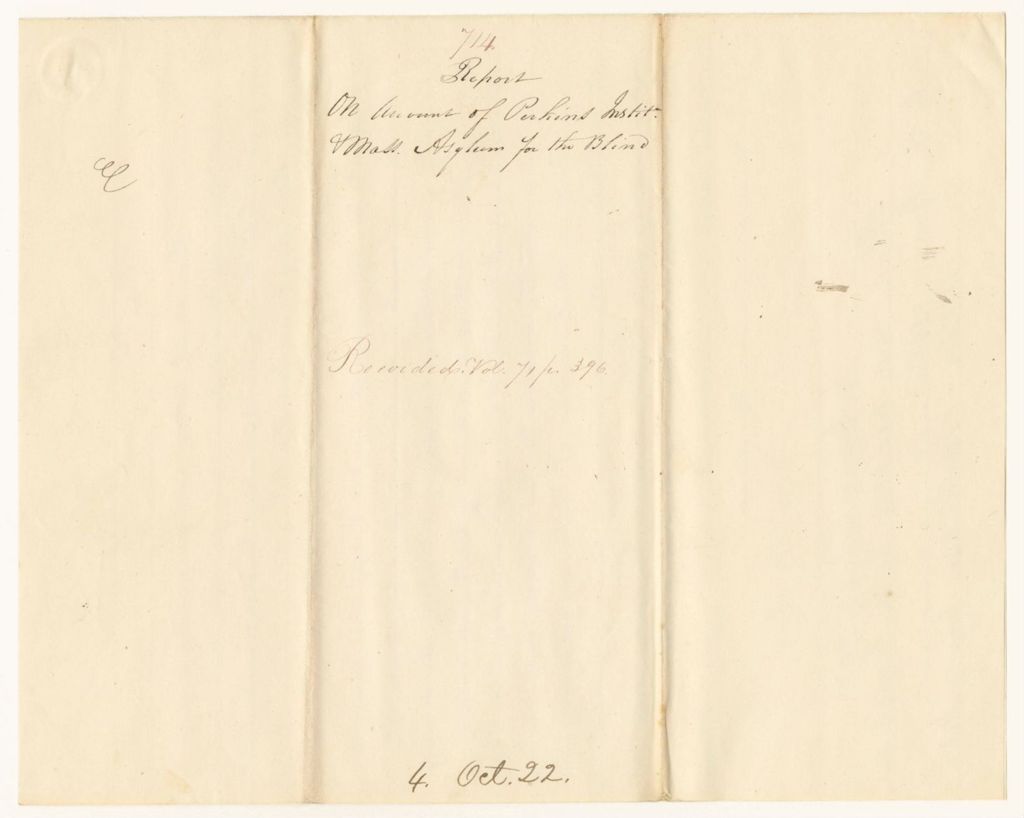 714
Report
On Account of Perkins Instit.
& Mass. Asylum for the Blind
Recorded. Vol. 71 p. 396.
4. Oct. 22.